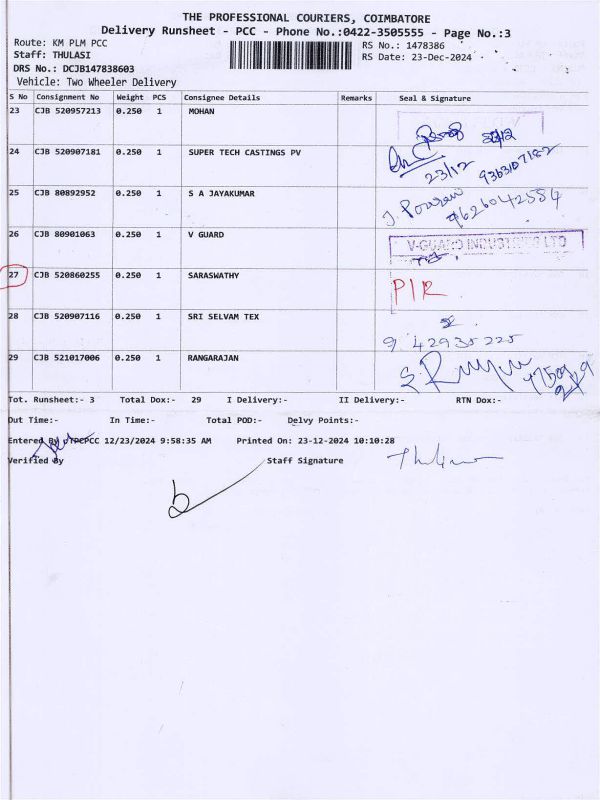 THE PROFESSIONAL COURIERS, COIMBATORE
Delivery Runsheet - PCC - Phone No.:0422-3505555 - Page No.:3
Route: KM PLM PCC
RS No.: 1478386
Staff: THULASI
RS Date: 23-Dec-2024
DRS No.: DCJB147838603
Vehicle: Two Wheeler Delivery
S No Consignment No Weight PCS Consignee Details Remarks Seal & Signature
23 CJB 520957213 0.250 1 MOHAN
24 CJB 520907181 0.250 1 SUPER TECH CASTINGS PV
23/12 9363107182
25 CJB 80892952 0.250 1 S A JAYAKUMAR
9626042554
26 CJB 80901063 0.250 1 V GUARD
V-GUARD INDUSTRIES LTD
27 CJB 520860255 0.250 1 SARASWATHY
PIR
28 CJB 520907116 0.250 1 SRI SELVAM TEX
9 42935225
29 CJB 521017006 0.250 1 RANGARAJAN
Tot. Runsheet:- 3 Total Dox:- 29 I Delivery:- II Delivery:- RTN Dox:-
Out Time:- In Time:- Total POD:- Delvy Points:-
Entered By 12/23/2024 9:58:35 AM Printed On: 23-12-2024 10:10:28
Verified By Staff Signature